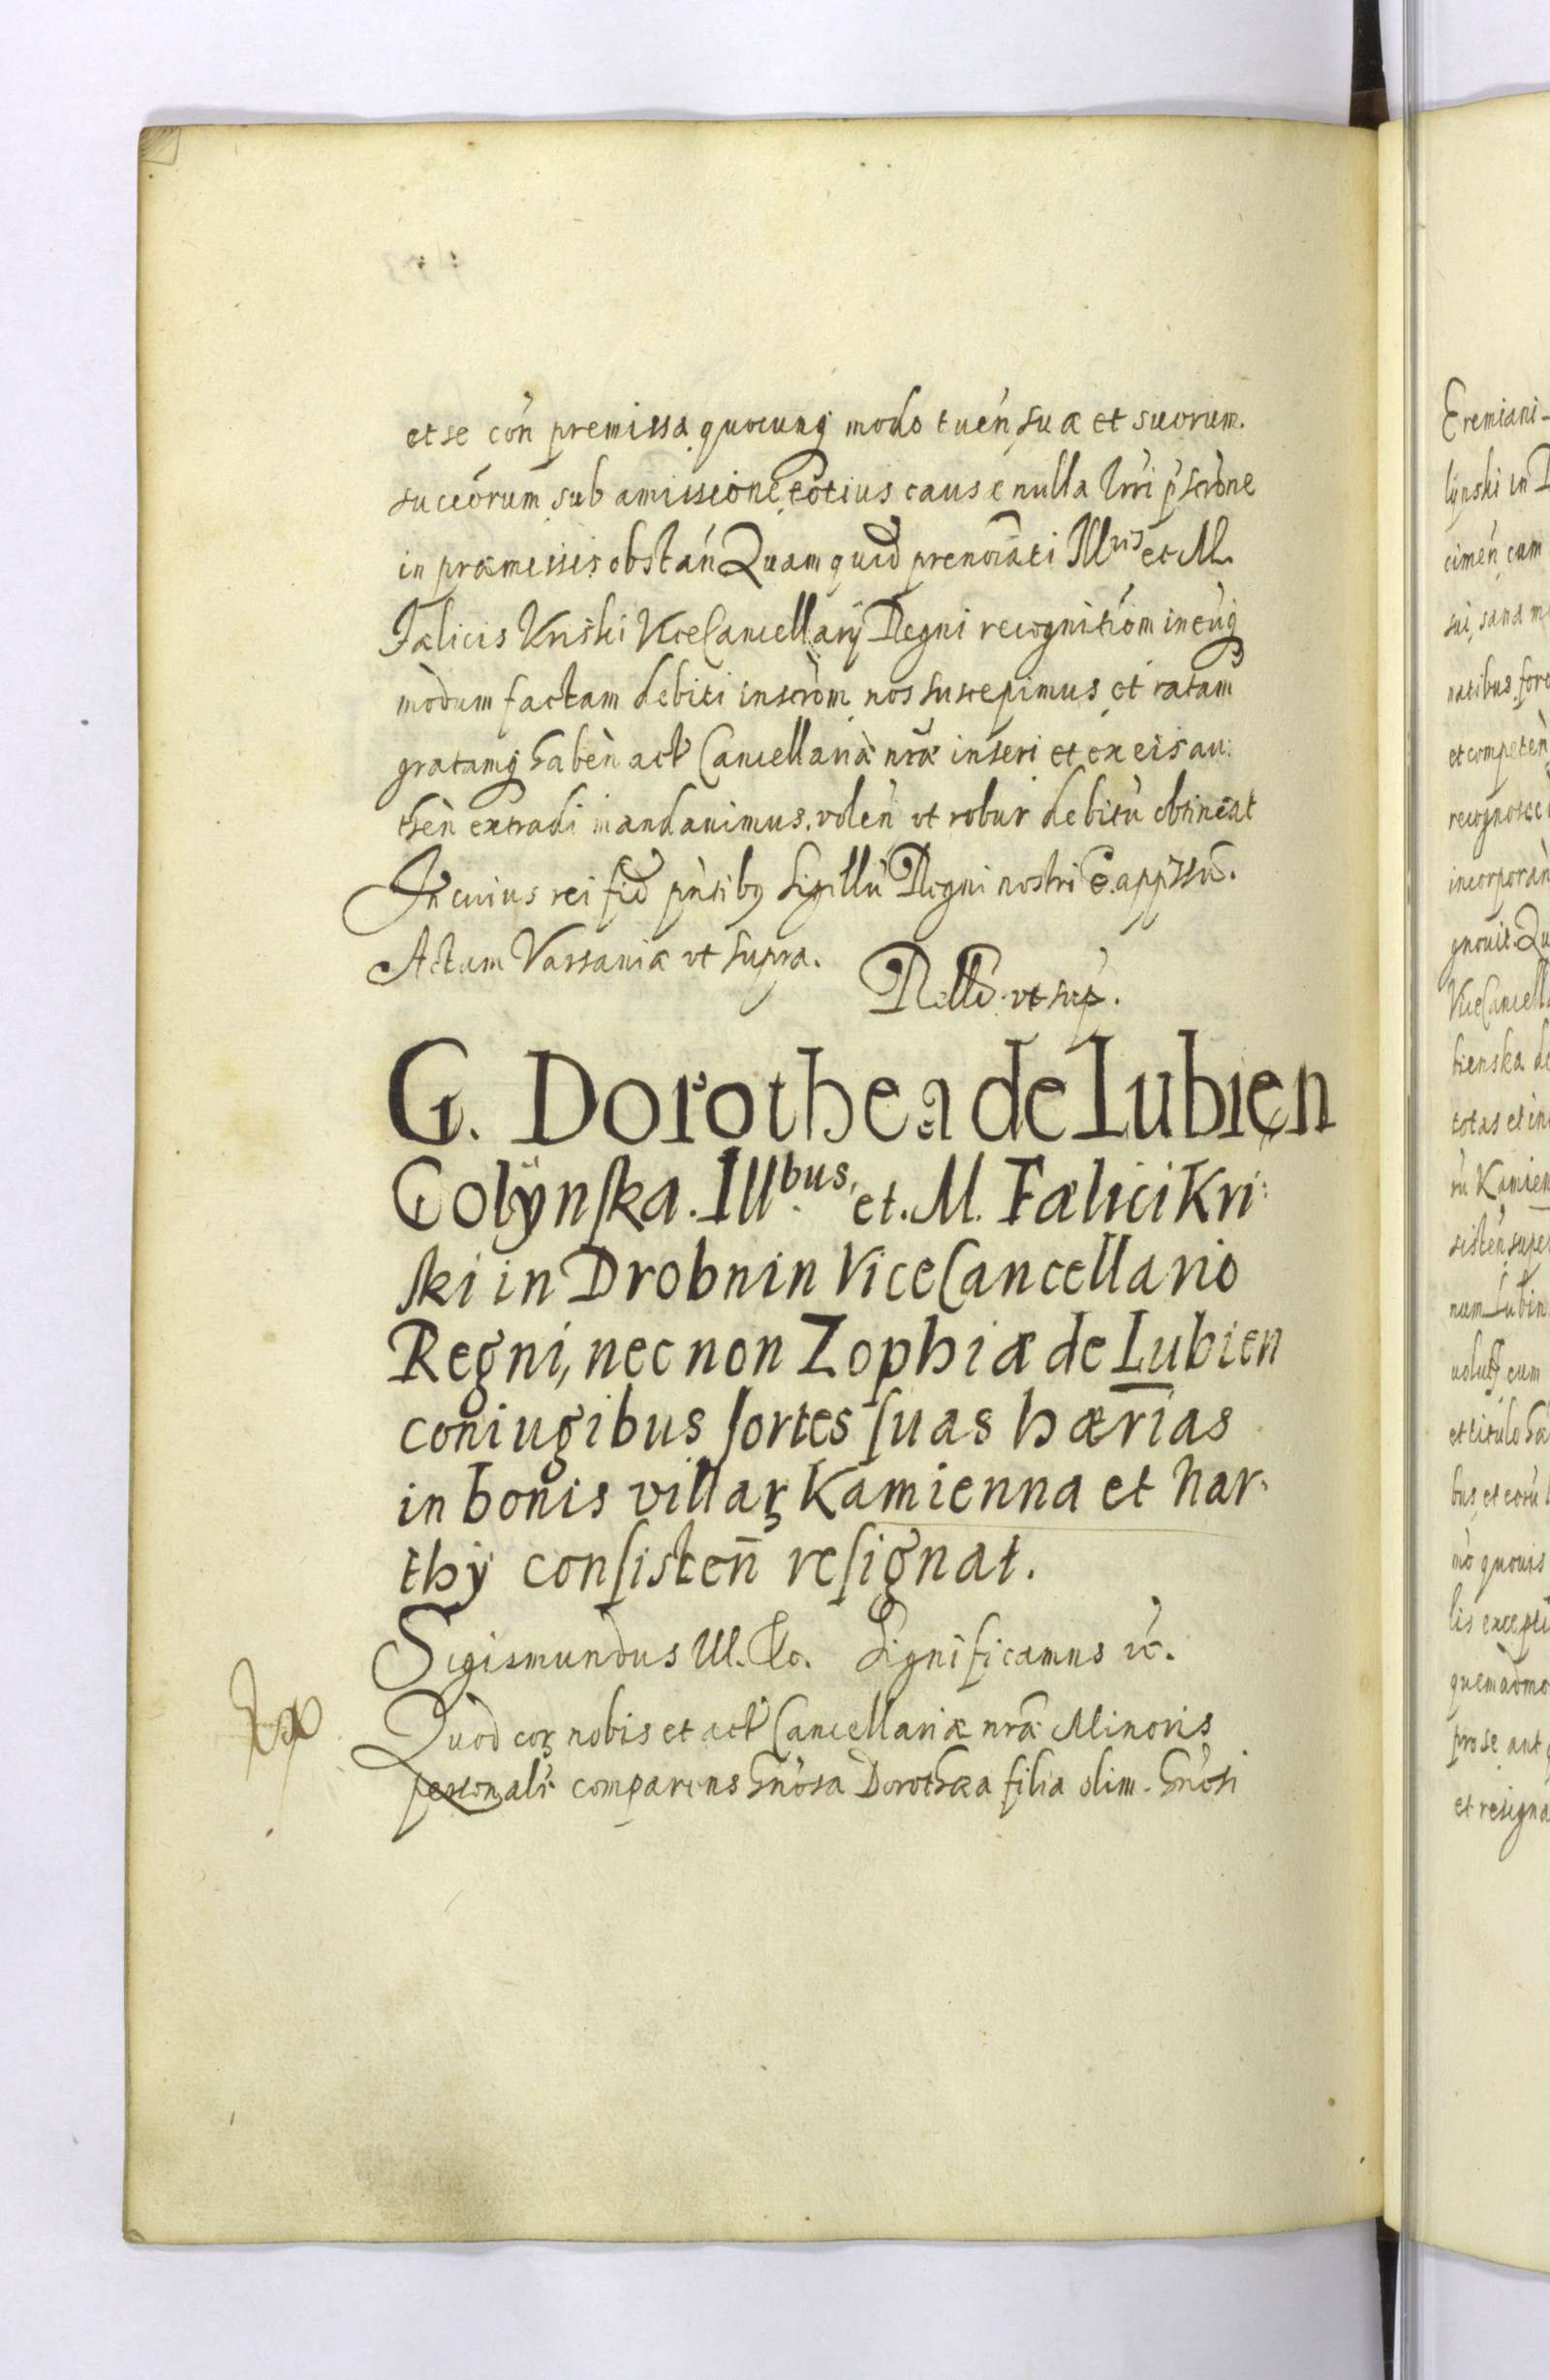 et se con̄ premissa quocunq modo tuen̄ sua et suorum.
succōrum sub amissione totius cause nulla lrri p̄scrōne
in præmissis obstan̄ Quam quid prenoīati Ill^ris et M.
Fælicis Kriski ViceCancellarij Regni recognitiōm in eūq
modum factam debiti inscrōm nos suscepimus et ratam
gratamq haben̄ act Cancellariæ nr̄æ inseri et ex eis au:
then̄ extradi mandavimus. volen̄ vt robur debitū obtineāt
In cuius rei fid pn̄tibus Sigillū Regni nostri ē appssū.
Actum Varsaviæ vt supra.
Rllō vt sup.
G. Dorothea de Lubien
Golÿnska. Ill^bus. et. M. Fælici Kri:
ski in Drobnin ViceCancellario
Regni, nec non Zophiæ de Lubien
coniugibus sortes suas hærīas
in bonis villaꝝ Kamienna et har:
thÿ consisten̄ resignat.
Sigismundus III. &c. Significamus &c.
Quod coꝝ nobis et act Cancellariæ nr̄æ Minoris
personalr̄ comparens Gn̄osa Dorothæa filia olim. Gn̄osi
Eremiani-
lÿnski in D
cimen̄ cum
sui, sana m
natibus fore
et competen̄
recognosce
incorporan̄
gnovit. Qu
ViceCancella
bienska de
totas et in
rū Kamien
sisten̄ super
num Lubin
volutƺ cum
et titulo hæ
bus, et eorū
mō quovis
lis excepti
quemadmo
pro se aut
et resigna